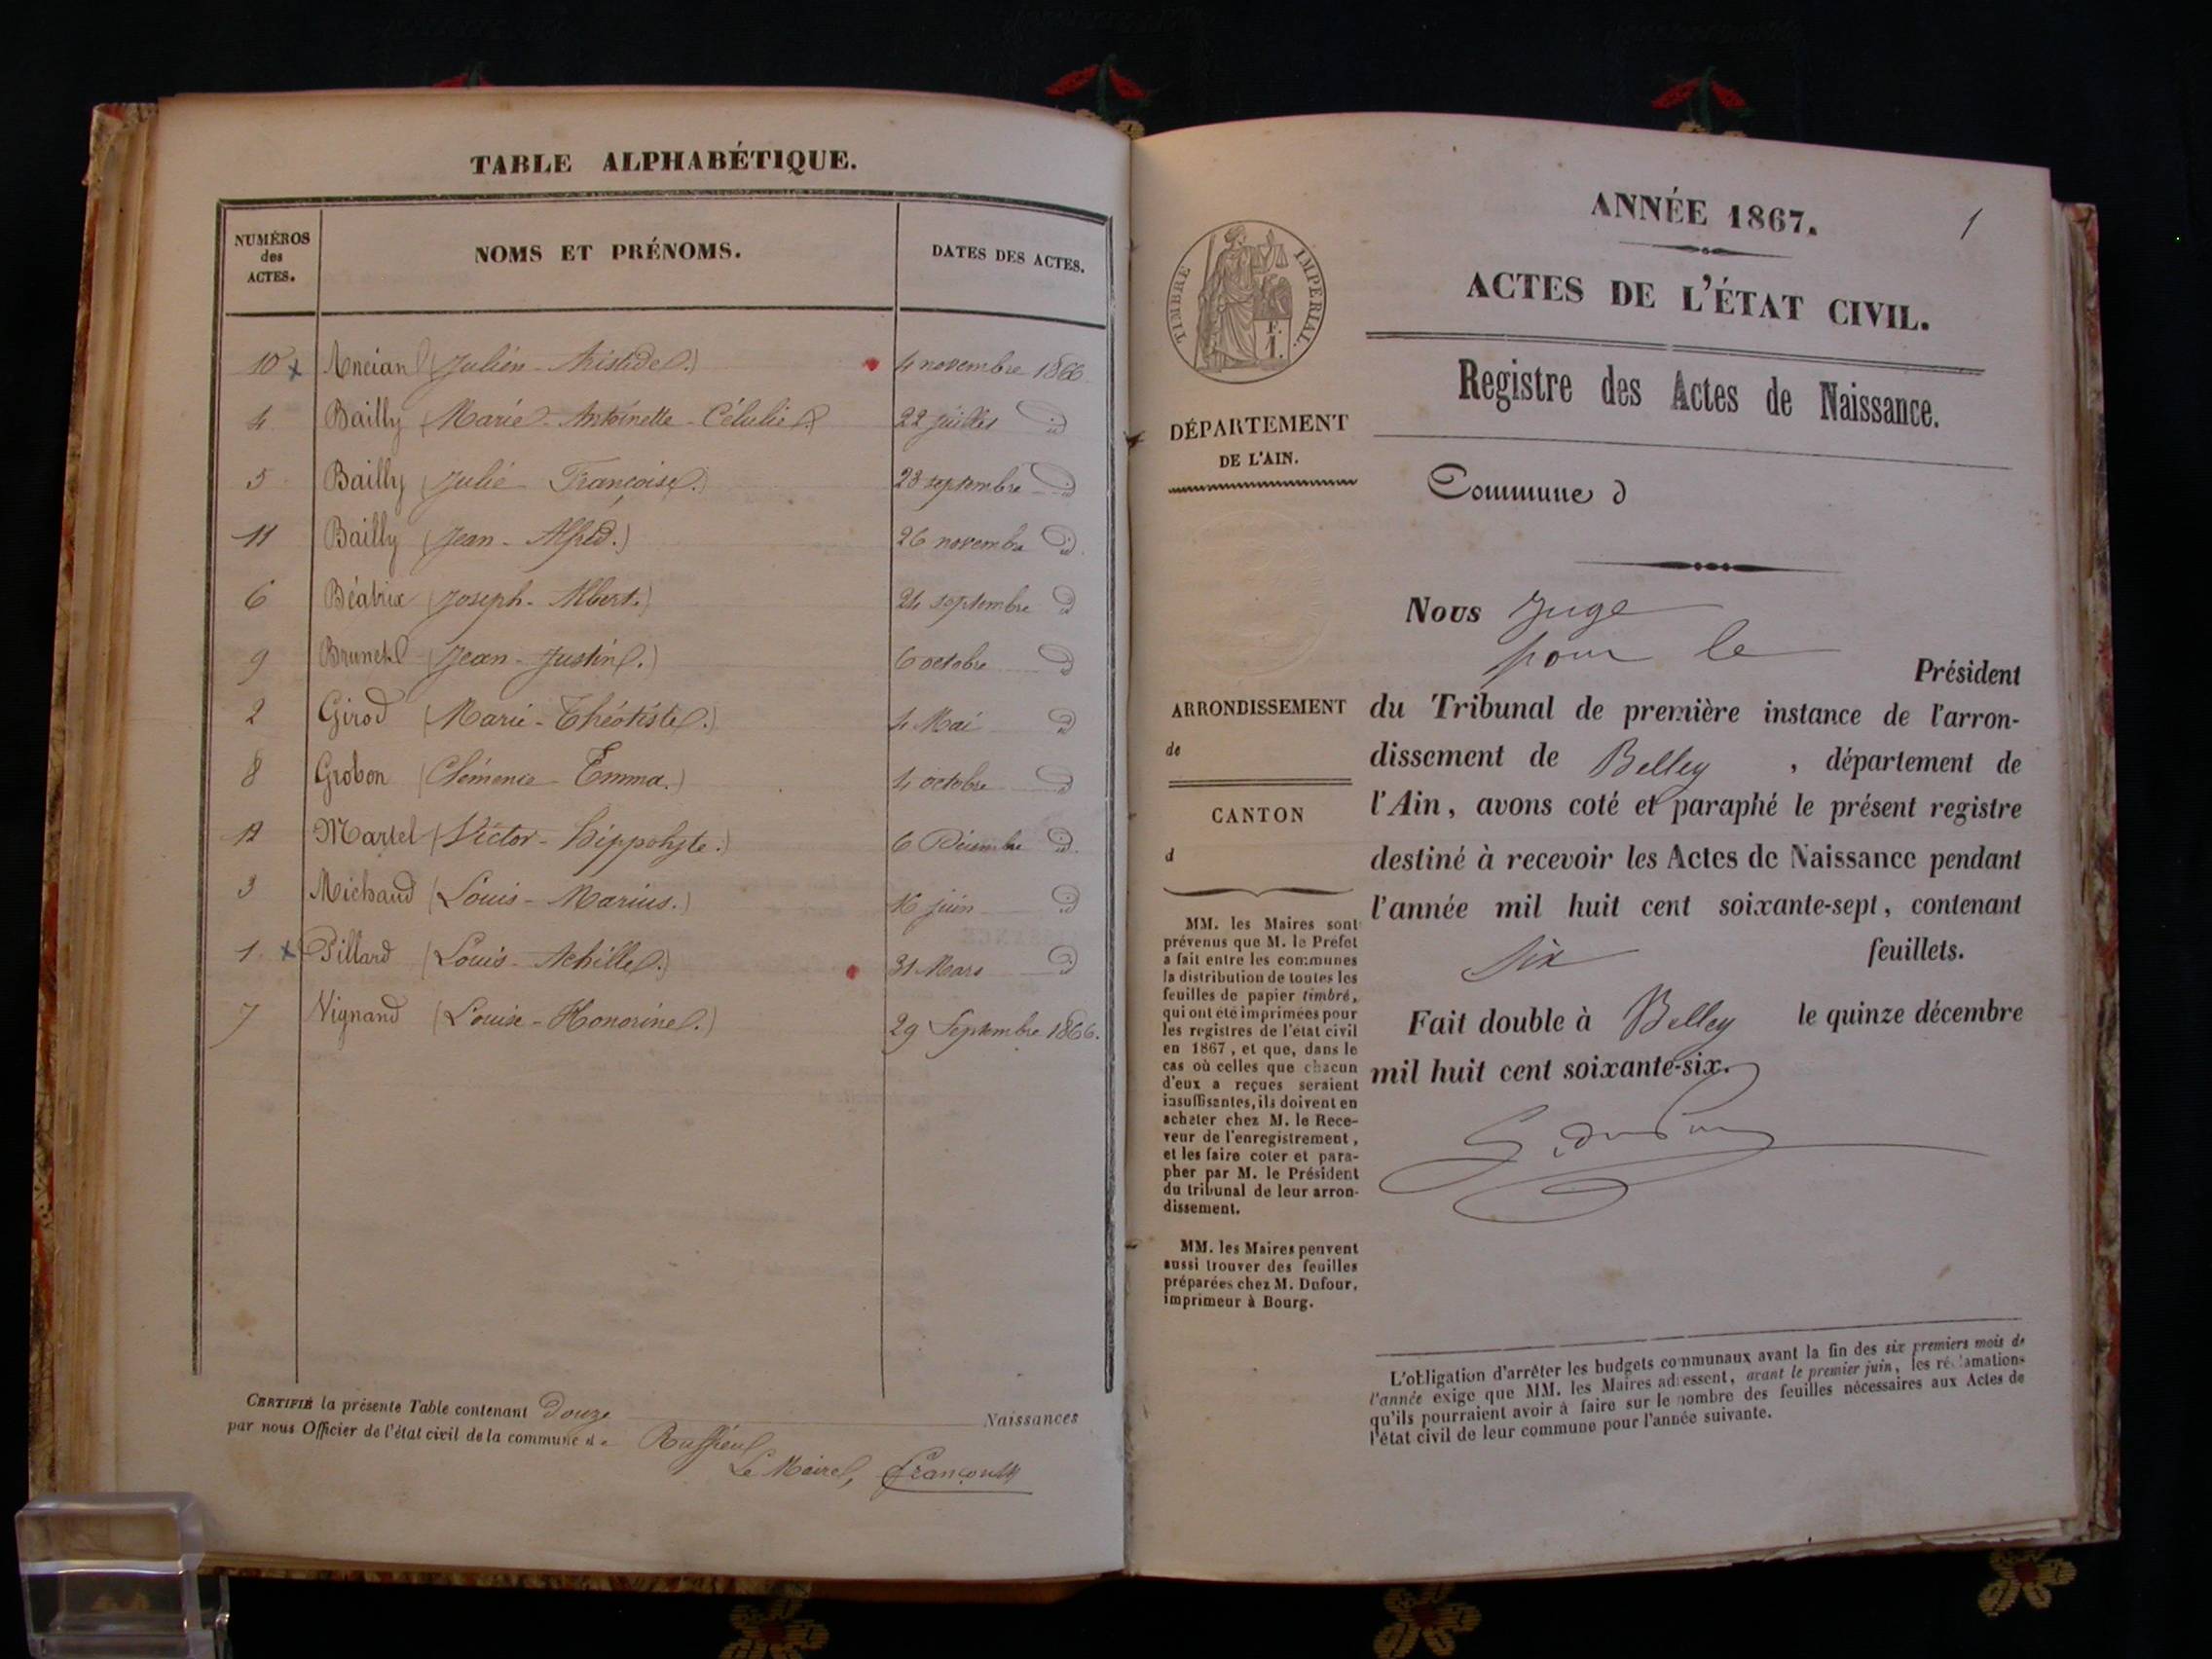 TABLE ALPHABÉTIQUE.
NUMÉROS des ACTES. NOMS ET PRÉNOMS. DATES DES ACTES.
10 Ancian (Julien - Aristide.) 4 novembre 1866
4 Bailly (Marie - Antoinette - Célulie) 22 juillet id
5 Bailly (Julie Françoise.) 23 septembre id
11 Bailly (Jean - Alfred.) 26 novembre id
6 Béatrix (Joseph - Albert.) 24 septembre id
9 Brunet (Jean - Justin.) 6 octobre id
2 Girod (Marie - Théotiste.) 4 Mai id
8 Grobon (Clémence - Emma.) 4 octobre id
12 Martel (Victor - hippolyte.) 6 Décembre id
3 Michaud (Louis - Marius.) 16 juin id
1 Pillard (Louis - Achille.) 31 Mars id
7 Vignand (Louise - Honorine.) 29 Septembre 1866.
CERTIFIÉ la présente Table contenant douze Naissances
par nous Officier de l'état civil de la commune de Ruffieu
Le Maire,
1
ANNÉE 1867.
ACTES DE L'ÉTAT CIVIL.
Registre des Actes de Naissance.
TIMBRE IMPÉRIAL.
F.
1.
DÉPARTEMENT
DE L'AIN.
Commune d
ARRONDISSEMENT
de
CANTON
d
Nous Juge
pour le
Président
du Tribunal de première instance de l'arron-
dissement de Belley , département de
l'Ain, avons coté et paraphé le présent registre
destiné à recevoir les Actes de Naissance pendant
l'année mil huit cent soixante-sept, contenant
six feuillets.
Fait double à Belley le quinze décembre
mil huit cent soixante-six.
MM. les Maires sont
prévenus que M. le Préfet
a fait entre les communes
la distribution de toutes les
feuilles de papier timbré,
qui ont été imprimées pour
les registres de l'état civil
en 1867, et que, dans le
cas où celles que chacun
d'eux a reçues seraient
insuffisantes, ils doivent en
acheter chez M. le Rece-
veur de l'enregistrement,
et les faire coter et para-
pher par M. le Président
du tribunal de leur arron-
dissement.
MM. les Maires peuvent
aussi trouver des feuilles
préparées chez M. Dufour,
imprimeur à Bourg.
L'obligation d'arrêter les budgets communaux avant la fin des six premiers mois de
l'année exige que MM. les Maires adressent, avant le premier juin, les réclamations
qu'ils pourraient avoir à faire sur le nombre des feuilles nécessaires aux Actes de
l'état civil de leur commune pour l'année suivante.